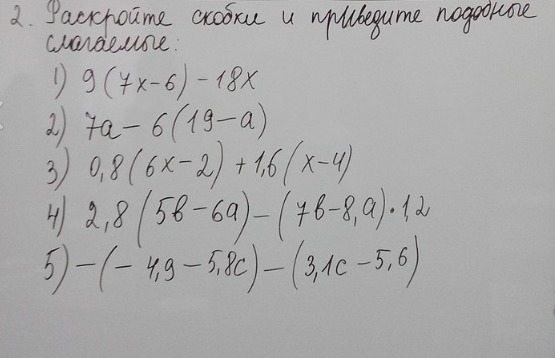 2. Раскройте скобки и приведите подобные
слагаемые:
1) 9(7x-6)-18x
2) 7a-6(19-a)
3) 0,8(6x-2)+1,6(x-4)
4) 2,8(5в-6a)-(7в-8,a)·1,2
5) -(-4,9-5,8c)-(3,1c-5,6)